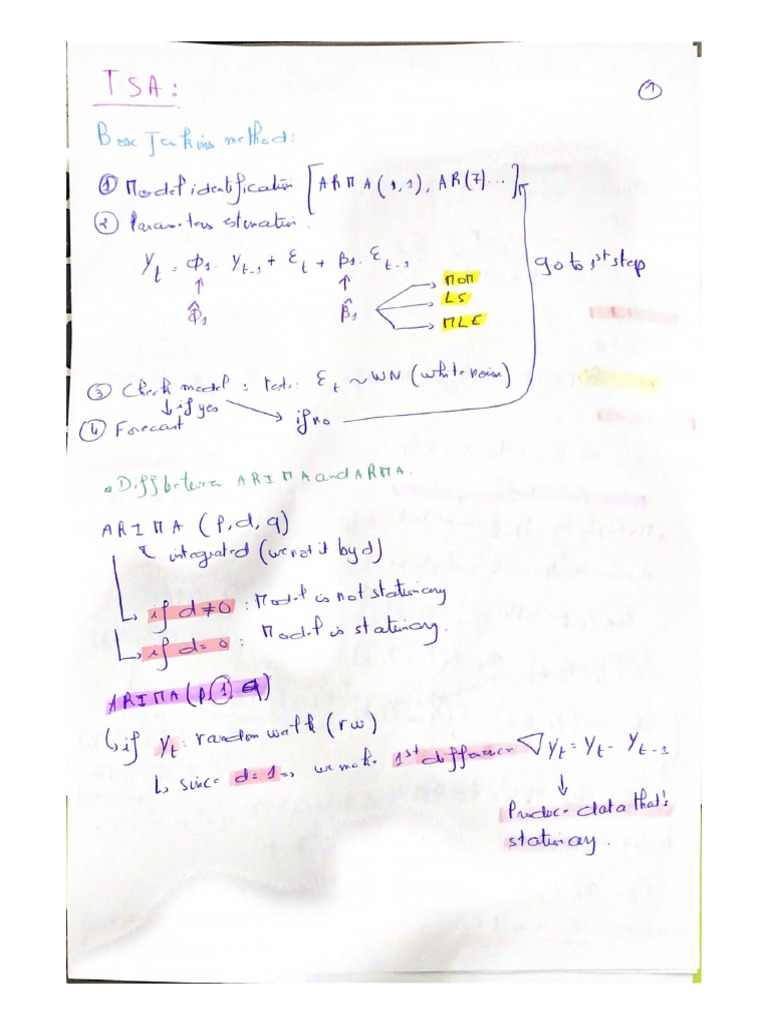 TSA:
1
Box Jenkins method:
① Model identification [ARMA(1,1), AR(7)...]
② Parameters estimation.
Y_t = Φ_1 . Y_{t-1} + Ɛ_t + β_1 . Ɛ_{t-1}
go to 1st step
Φ̂_1 β̂_1
MOM
LS
MLE
③ Check model : test: Ɛ_t ~ WN (white noise)
↓ if yes
if no
④ Forecast
Diff between ARIMA and ARMA.
ARIMA (p,d,q)
integrated (we not it by d)
if d ≠ 0 : Model is not stationary
if d = 0 : Model is stationary.
ARIMA (p,1,q)
if Y_t : random walk (rw)
since d=1 => we make 1st difference ∇Y_t = Y_t - Y_{t-1}
↓
Produce data that's
stationary.